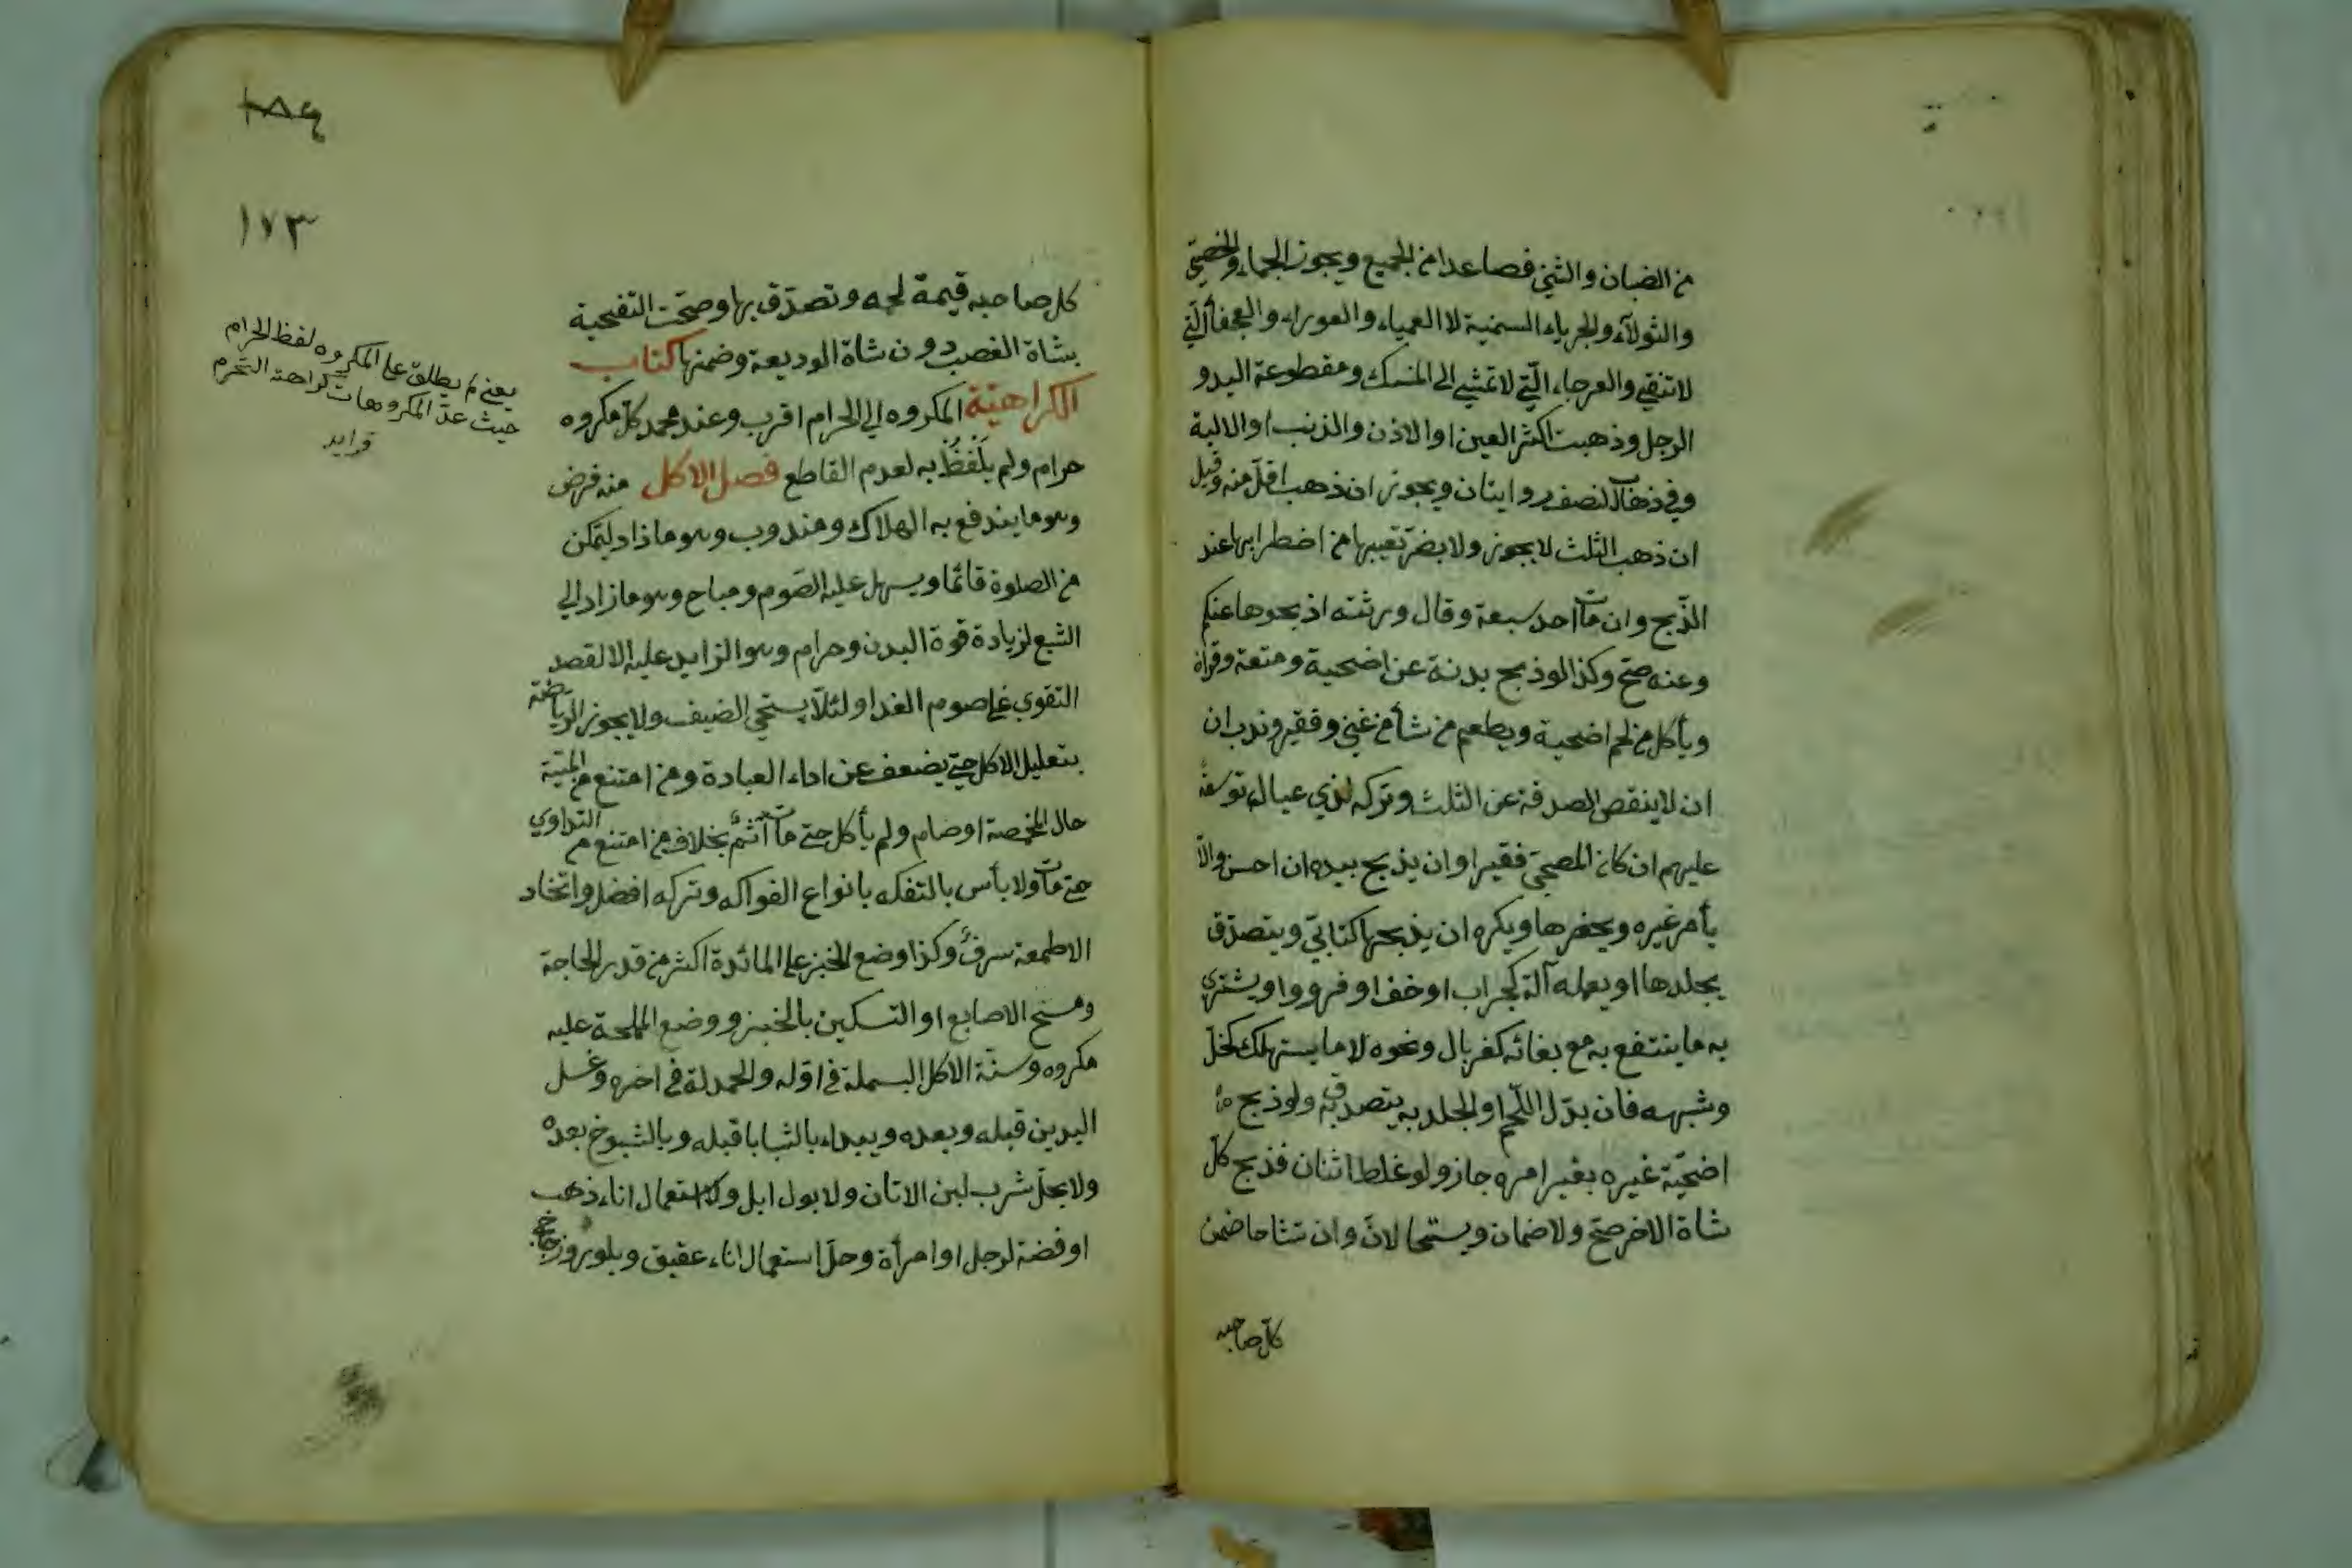 من الضان والثني فصاعدا من الجميع ويجوز الجماء والخصي
والثولآء والجرباء السمنية لا العمياء والعوراء والعجفأ التي
لا تنقي والعرجاء الّتي لا تمشي الى المنسك ومقطوعة اليد و
الرجل وذهبت اكثر العين او الاذن والذنب او الالية
وفي ذهاب النصف روايتان ويجوز ان ذهب اقلّ منه وقيل
ان ذهب الثلث لا يجوز ولا يضرّ تعيبها من اضطرابها عند
الذّبح وان مات احد سبعة وقال ورثته اذبحوها عنكم
وعنه صحّ وكذا لو ذبح بدنة عن اضحية ومتعة وقران
ويأكل من لحم اضحية ويطعم من شأ من غني وفقير وندب ان
ان لا ينقص الصدقة عن الثلث وتركه لذي عيال توسعة
عليهم ان كان المضحي فقيرا وان يذبح بيده ان احسن والّا
يأمر غيره ويحضرها ويكره ان يذبحها كتابيّ ويتصدّق
بجلدها او يعمله آلة كجراب او خف او فرو واو يشتري
به ما ينتفع به مع بقائه كغربال ونحوه لا ما يستهلك كخلّ
وشبهه فان بدّل اللّحم او الجلد به يتصدق به ولو ذبح
اضحيّة غيره بغير امره جاز ولو غلط اثنان فذبح كلّ
شاة الاخر صحّ ولا ضمان ويستحالانّ وان تشاحا ضمن
كلّ صاحبه
١٨٩
١٧٣
كل صاحبه قيمة لحمه وتصدّق بها وصحّت التضحية
بشاة الغصب دون شاة الوديعة وضمنها كتاب
الكراهيّة المكروه الي الحرام اقرب وعند محمد كلّ مكروه
حرام ولم يَلْفُظْ به لعدم القاطع فصل الاكل منه فرض
وهو ما يندفع به الهلاك ومندوب وهو ما زاد ليتمكن
من الصلوة قائما ويسهل عليه الصّوم ومباح وهو ما زاد الي
الشبع لزيادة قوة البدن وحرام وهو الزايد عليه الا لقصد
التقوي على صوم الغد او لئلّا يستحيي الضيف ولا يجوز الرّياضة
بتقليل الاكل حتي يضعف عن اداء العبادة ومن امتنع من الميتة
حال المخمصة او صام ولم يأكل حتي مات اثمٌ بخلاف من امتنع من التداوي
حتي مات ولا بأس بالتفكه بانواع الفواكه وتركه افضل واتخاد
الاطمعة سرفٌ وكذا وضع الخبز على المائدة اكثر من قدر الحاجة
ومسح الاصابع او السكين بالخبز ووضع المملحة عليه
مكروه وسنّة الاكل البسملة في اوّله والحمدلة في اخره وغسل
اليدين قبله وبعده ويبداء بالشبابا قبله وبالشيوخ بعده
ولا يحلّ شرب لبن الاتان ولا بول ابل ولا استعمال اناء ذهب
او فضة لرجل او امرأة وحلّ استعمال اناء عقيق وبلور وزجاج
يعني لم يطلق على المكروه لفظ الحرام
حيث عدّ المكروهات كراهة التحرم
فرايد